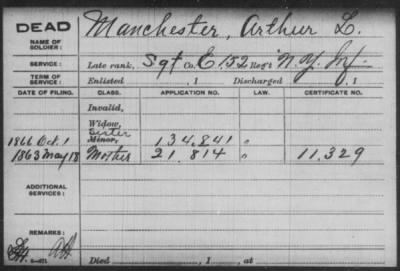 DEAD
NAME OF SOLDIER: Manchester, Arthur L.
SERVICE: Late rank, Sgt Co. E 152 Reg't N.Y. Inf.
TERM OF SERVICE: Enlisted , 1 Discharged , 1
DATE OF FILING. CLASS. APPLICATION NO. LAW. CERTIFICATE NO.
Invalid,
Widow,
Sister
1866 Oct. 1 Minor, 134,841 "
1863 May 18 Mother 21,814 " 11,329
ADDITIONAL SERVICES:
REMARKS:
Died , 1 , at